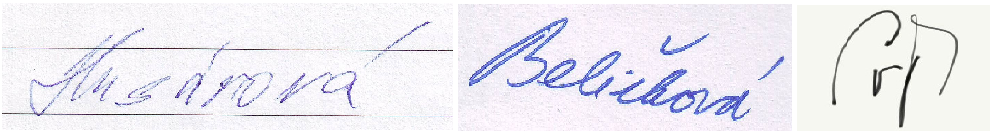 Husárová Beličková